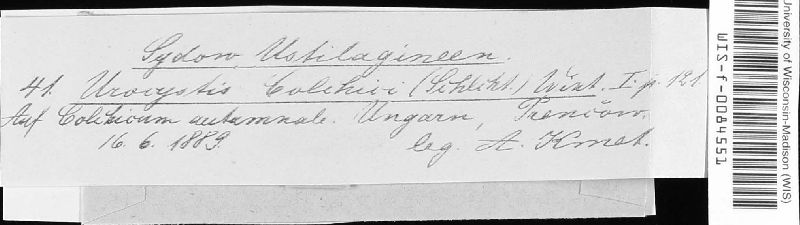 Sydow, Ustilagineen.
41. Urocystis Colchici (Schlcht.) Wint. I. p. 121
Auf Colchicum autumnale. Ungarn, Trenčow.
16. 6. 1889. leg. A. Kmet.
University of Wisconsin-Madison (WIS)
WIS-f-0084551